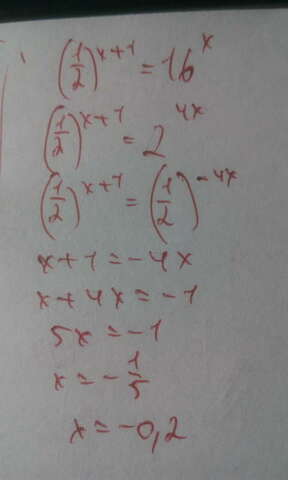 (1/2)^x+1 = 16^x
(1/2)^x+1 = 2^4x
(1/2)^x+1 = (1/2)^-4x
x+1=-4x
x+4x=-1
5x=-1
x=-1/5
x=-0,2